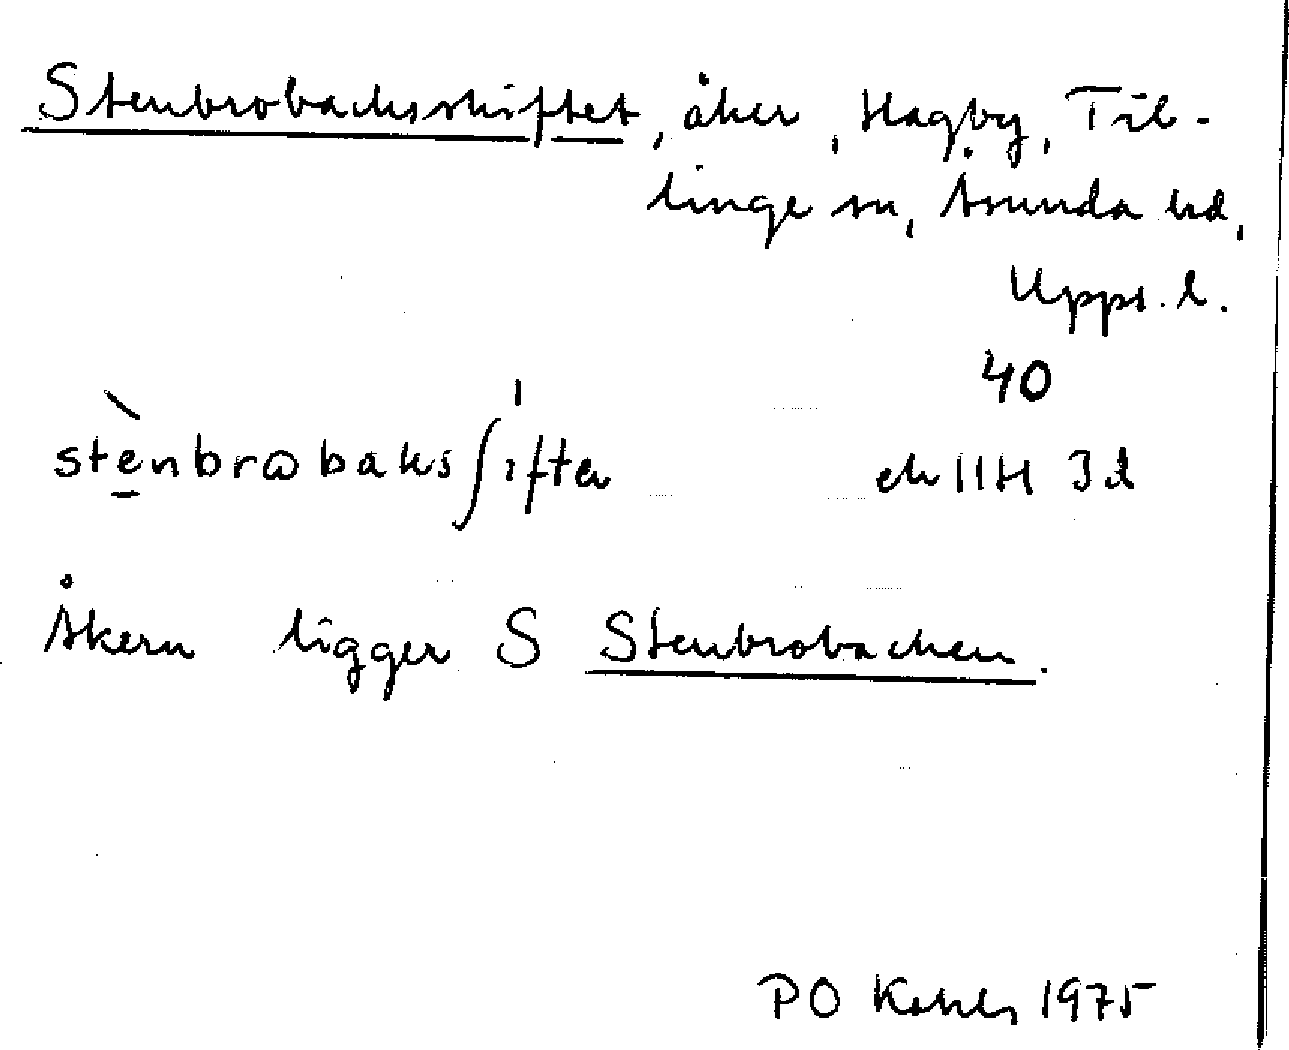 Stenbrobacksskiftet, åker, Hagby, Til-
linge sn, Åsunda hd,
Upps. l.
40
stènbrωbaksʃıften ek 11H 3d
Åkern ligger S Stenbrobacken.
PO 1975